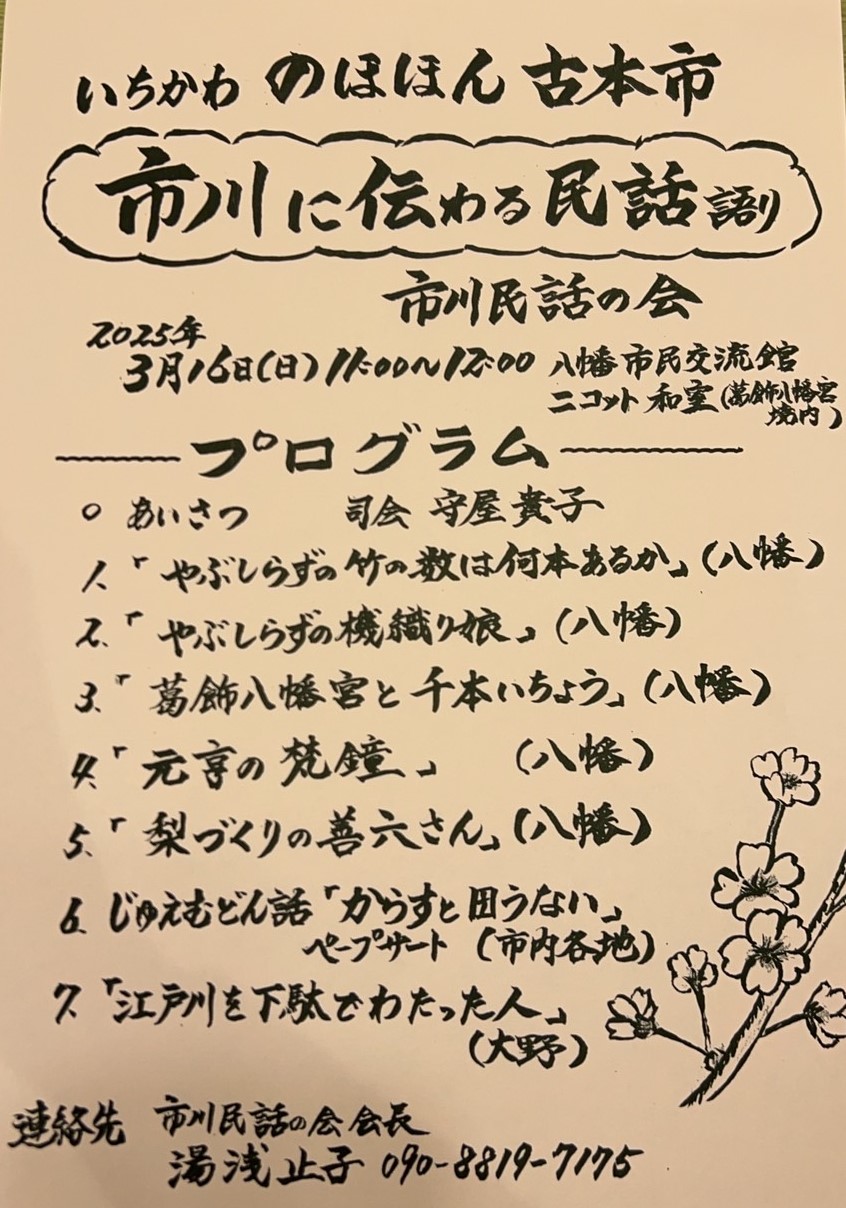 いちかわ のほほん 古本市
市川に伝わる民話 語り
市川民話の会
2025年
3月16日(日) 11:00〜12:00 八幡市民交流館
ニコット 和室(葛飾八幡宮
境内)
プログラム
○ あいさつ 司会 守屋貴子
1.「やぶしらずの竹の数は何本あるか」(八幡)
2.「やぶしらずの機織り娘」(八幡)
3.「葛飾八幡宮と千本いちょう」(八幡)
4.「元亨の梵鐘」 (八幡)
5.「梨づくりの善六さん」(八幡)
6. じゅえむどん話「からすと田うない」
ペープサート (市内各地)
7.「江戸川を下駄でわたった人」
(大野)
連絡先 市川民話の会 会長
湯浅止子 090-8819-7175